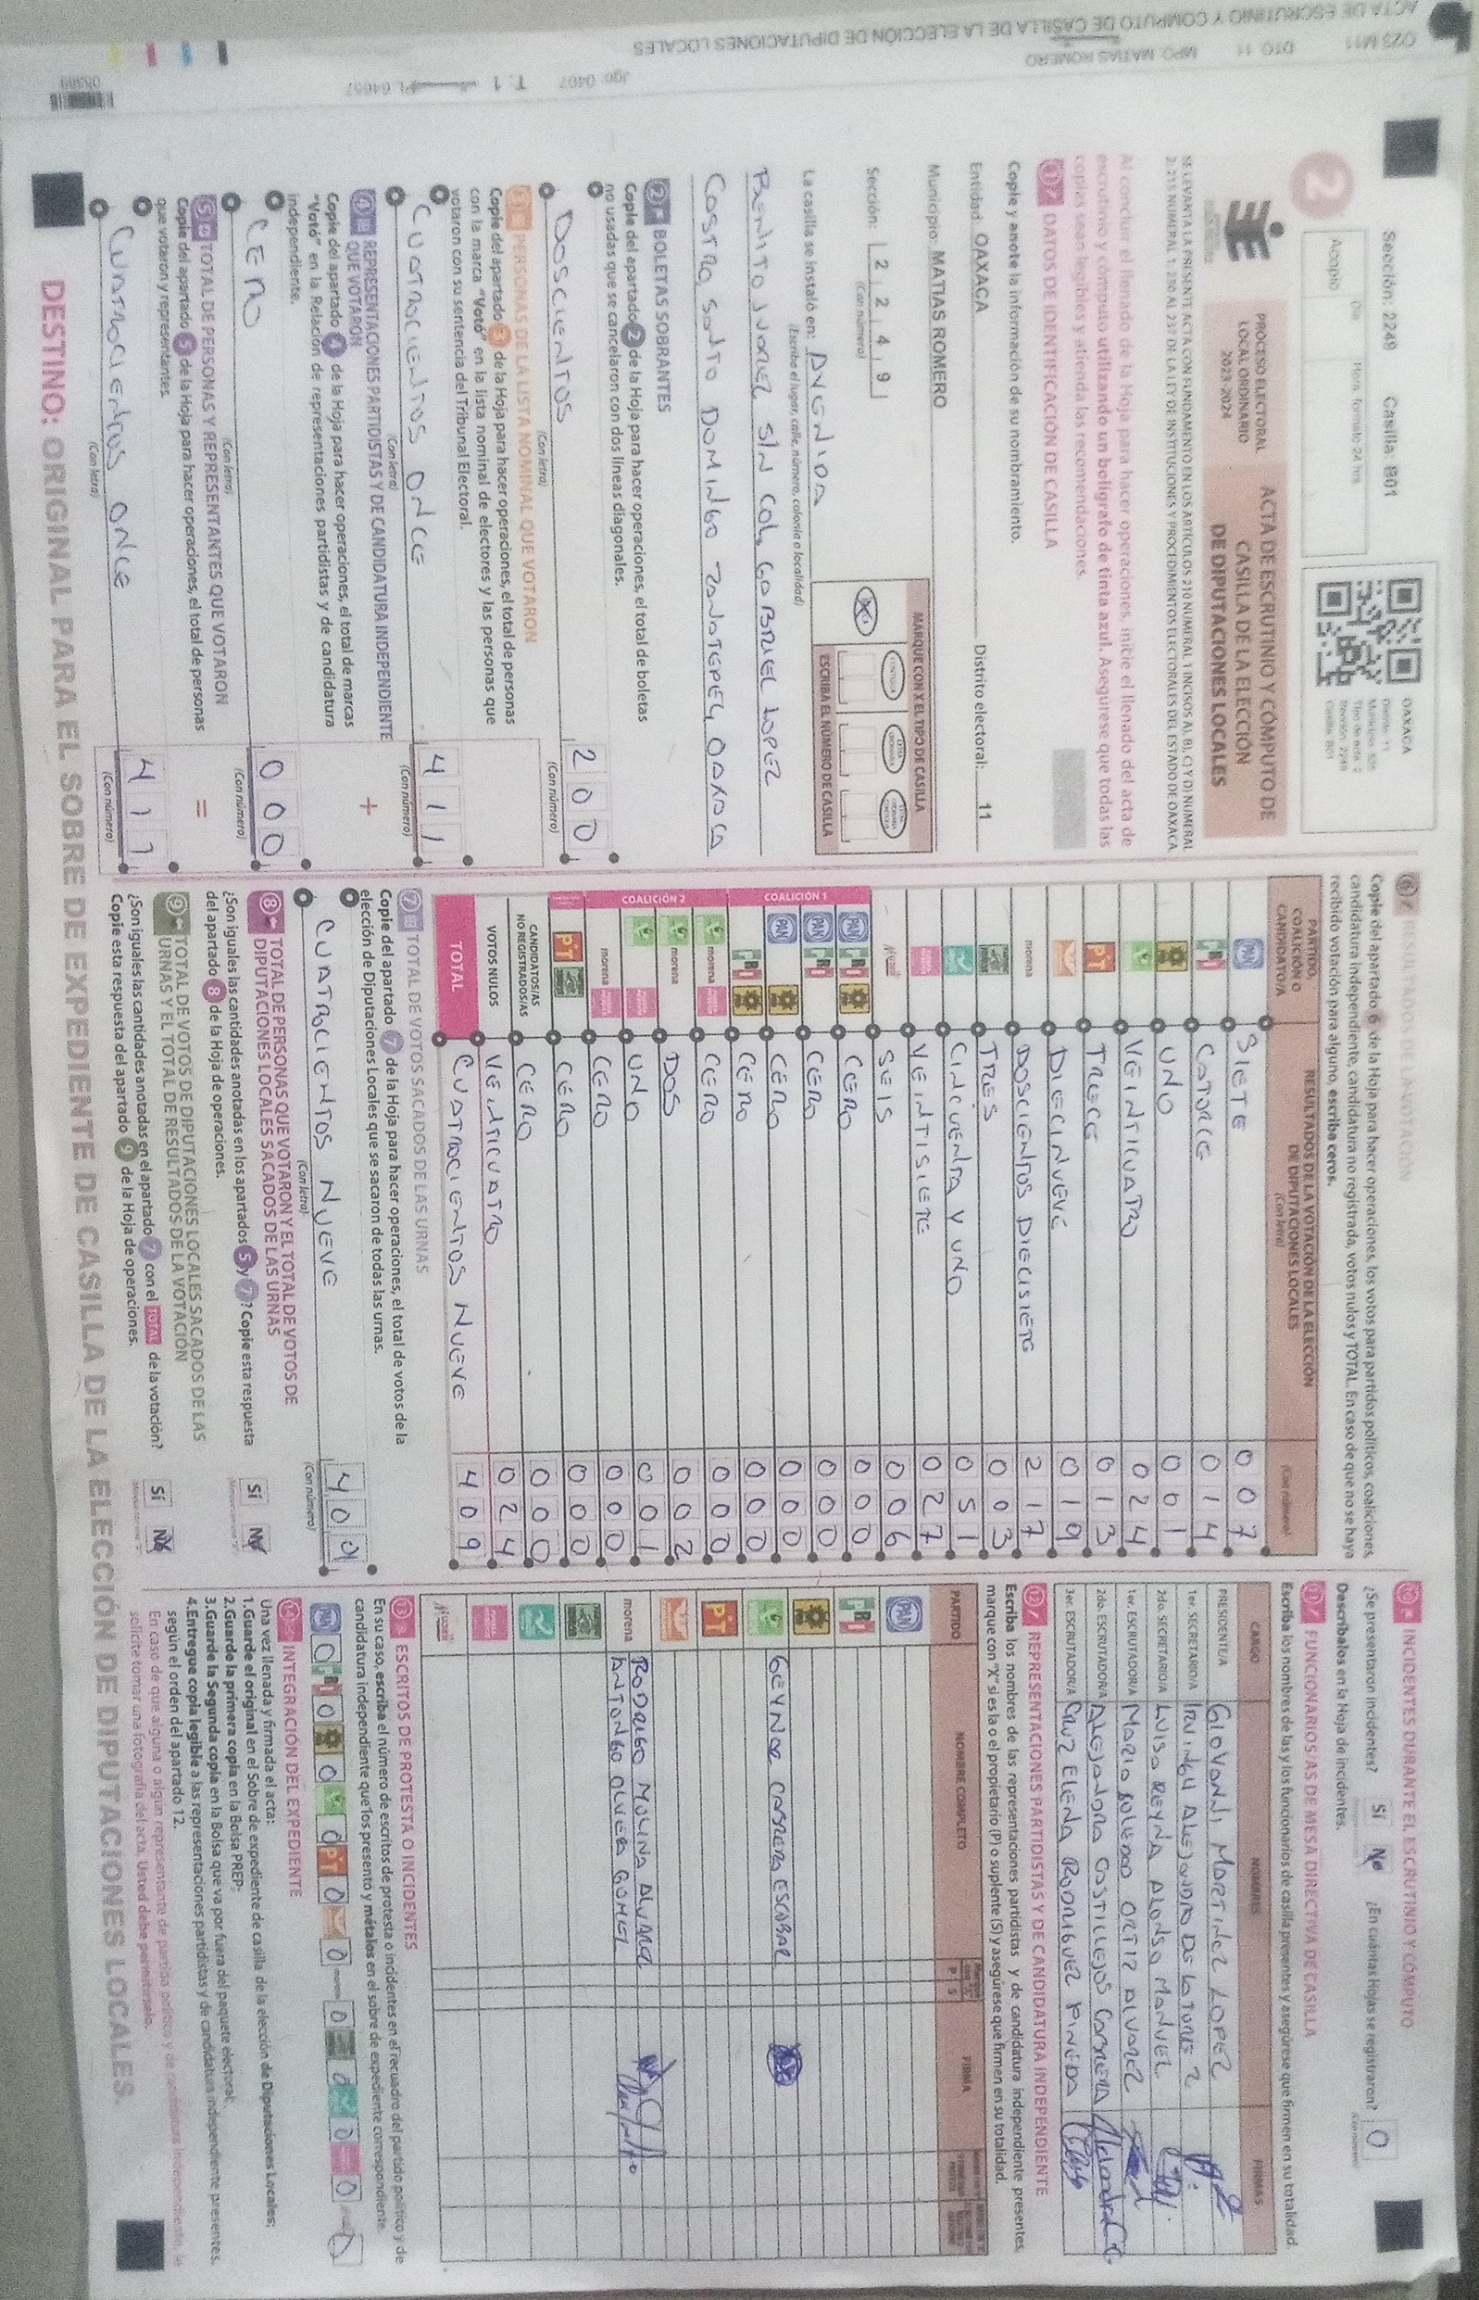 Sección: 2249 Casilla: B01
Acopio
Día
Hora, formato 24 hrs
OAXACA
Distrito: 11
Tipo de acta: 2
Sección: 2249
Casilla: B01
2
PROCESO ELECTORAL
LOCAL ORDINARIO
2023-2024
ACTA DE ESCRUTINIO Y CÓMPUTO DE
CASILLA DE LA ELECCIÓN
DE DIPUTACIONES LOCALES
SE LEVANTA LA PRESENTE ACTA CON FUNDAMENTO EN LOS ARTÍCULOS 210 NUMERAL 1 INCISOS A), B), C) Y D) NUMERAL
2; 215 NUMERAL 1; 230 AL 237 DE LA LEY DE INSTITUCIONES Y PROCEDIMIENTOS ELECTORALES DEL ESTADO DE OAXACA.
Al concluir el llenado de la Hoja para hacer operaciones, inicie el llenado del acta de
escrutinio y cómputo utilizando un bolígrafo de tinta azul. Asegúrese que todas las
copias sean legibles y atienda las recomendaciones.
1 DATOS DE IDENTIFICACIÓN DE CASILLA
Copie y anote la información de su nombramiento.
Entidad: OAXACA Distrito electoral: 11
Municipio: MATIAS ROMERO
Sección: 2 2 4 9
(Con número)
MARQUE CON X EL TIPO DE CASILLA
ESCRIBA EL NÚMERO DE CASILLA
La casilla se instaló en: AVENIDA
(Escriba el lugar, calle, número, colonia o localidad)
BENITO JUAREZ S/N COL. GABRIEL LOPEZ
CASTRO SANTO DOMINGO ZANATEPEC, OAXACA
2 BOLETAS SOBRANTES
Copie del apartado 2 de la Hoja para hacer operaciones, el total de boletas
no usadas que se cancelaron con dos líneas diagonales.
DOSCIENTOS 200
(Con letra) (Con número)
3 PERSONAS DE LA LISTA NOMINAL QUE VOTARON
Copie del apartado 3 de la Hoja para hacer operaciones, el total de personas
con la marca "Votó" en la lista nominal de electores y las personas que
votaron con su sentencia del Tribunal Electoral.
CUATROCIENTOS ONCE 411
(Con letra) (Con número)
4 REPRESENTACIONES PARTIDISTAS Y DE CANDIDATURA INDEPENDIENTE
QUE VOTARON
+
Copie del apartado 4 de la Hoja para hacer operaciones, el total de marcas
"Votó" en la Relación de representaciones partidistas y de candidatura
independiente.
CERO 000
(Con letra) (Con número)
5 TOTAL DE PERSONAS Y REPRESENTANTES QUE VOTARON
=
Copie del apartado 5 de la Hoja para hacer operaciones, el total de personas
que votaron y representantes.
CUATROCIENTOS ONCE 411
(Con letra) (Con número)
6 RESULTADOS DE LA VOTACIÓN
Copie del apartado 6 de la Hoja para hacer operaciones, los votos para partidos políticos, coaliciones,
candidatura independiente, candidatura no registrada, votos nulos y TOTAL. En caso de que no se haya
recibido votación para alguno, escriba ceros.
PARTIDO, COALICIÓN O CANDIDATO/A
RESULTADOS DE LA VOTACIÓN DE LA ELECCIÓN DE DIPUTACIONES LOCALES
(Con letra) (Con número)
PAN SIETE 007
PRI CATORCE 014
UNO 001
VEINTICUATRO 024
PT TRECE 013
DIECINUEVE 019
morena DOSCIENTOS DIECISIETE 217
TRES 003
CINCUENTA Y UNO 051
VEINTISIETE 027
SEIS 006
COALICIÓN 1
PAN PRI CERO 000
PAN PRI CERO 000
PAN CERO 000
PRI CERO 000
COALICIÓN 2
morena CERO 000
morena DOS 002
UNO 001
morena CERO 000
PT CERO 000
CANDIDATOS/AS NO REGISTRADOS/AS CERO 000
VOTOS NULOS VEINTICUATRO 024
TOTAL CUATROCIENTOS NUEVE 409
7 TOTAL DE VOTOS SACADOS DE LAS URNAS
Copie del apartado 7 de la Hoja para hacer operaciones, el total de votos de la
elección de Diputaciones Locales que se sacaron de todas las urnas.
CUATROCIENTOS NUEVE 409
(Con letra) (Con número)
8 TOTAL DE PERSONAS QUE VOTARON Y EL TOTAL DE VOTOS DE
DIPUTACIONES LOCALES SACADOS DE LAS URNAS
¿Son iguales las cantidades anotadas en los apartados 5 y 7? Copie esta respuesta
del apartado 8 de la Hoja de operaciones.
Sí No
9 TOTAL DE VOTOS DE DIPUTACIONES LOCALES SACADOS DE LAS
URNAS Y EL TOTAL DE RESULTADOS DE LA VOTACIÓN
¿Son iguales las cantidades anotadas en el apartado 7 con el TOTAL de la votación?
Copie esta respuesta del apartado 9 de la Hoja de operaciones.
Sí No
10 INCIDENTES DURANTE EL ESCRUTINIO Y CÓMPUTO
¿Se presentaron incidentes? Sí No ¿En cuántas Hojas se registraron? 0
Descríbalos en la Hoja de incidentes.
11 FUNCIONARIOS/AS DE MESA DIRECTIVA DE CASILLA
Escriba los nombres de las y los funcionarios de casilla presentes y asegúrese que firmen en su totalidad.
CARGO NOMBRES FIRMAS
PRESIDENTE/A GIOVANNI MARTINEZ LOPEZ
1er. SECRETARIO/A IRVINGH ALEJANDRO DE LA TORRE Z
2do. SECRETARIO/A LUISA REYNA ALONSO MANUEL
1er. ESCRUTADOR/A MARIO ORTIZ ALVAREZ
2do. ESCRUTADOR/A ALEJANDRA CASTILLEJOS CABRERA
3er. ESCRUTADOR/A CRUZ ELENA RODRIGUEZ PINEDA
12 REPRESENTACIONES PARTIDISTAS Y DE CANDIDATURA INDEPENDIENTE
Escriba los nombres de las representaciones partidistas y de candidatura independiente presentes,
marque con "X" si es la o el propietario (P) o suplente (S) y asegúrese que firmen en su totalidad.
PARTIDO NOMBRE COMPLETO P S FIRMA
PAN
PRI
GEYNOR CABRERA ESCOBAR
PT
morena RODRIGO MOLINA ALVAREZ
ANTONIO OLIVERA GOMEZ
13 ESCRITOS DE PROTESTA O INCIDENTES
En su caso, escriba el número de escritos de protesta o incidentes en el recuadro del partido político y de
candidatura independiente que los presentó y métalos en el sobre de expediente correspondiente.
PAN 0 PRI 0 0 0 PT 0 0 morena 0 0 0 0 0
14 INTEGRACIÓN DEL EXPEDIENTE
Una vez llenada y firmada el acta:
1.Guarde el original en el Sobre de expediente de casilla de la elección de Diputaciones Locales;
2.Guarde la primera copia en la Bolsa PREP;
3.Guarde la Segunda copia en la Bolsa que va por fuera del paquete electoral;
4.Entregue copia legible a las representaciones partidistas y de candidatura independiente presentes,
según el orden del apartado 12.
En caso de que alguna o algún representante de partido político y de candidatura independiente, le
solicite tomar una fotografía del acta, Usted debe permitírselo.
DESTINO: ORIGINAL PARA EL SOBRE DE EXPEDIENTE DE CASILLA DE LA ELECCIÓN DE DIPUTACIONES LOCALES.
ACTA DE ESCRUTINIO Y COMPUTO DE CASILLA DE LA ELECCIÓN DE DIPUTACIONES LOCALES
DTO 11 MPO MATIAS ROMERO
Jgo: 0407 T: 1